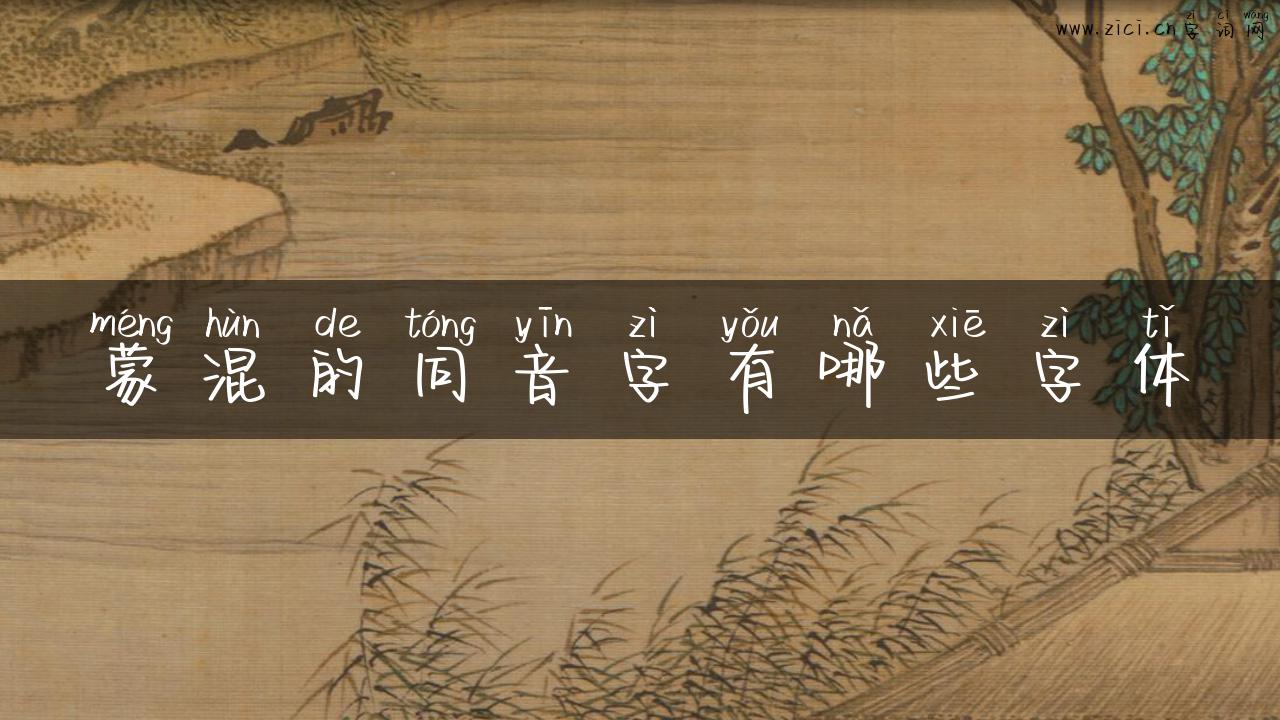 zì cí wǎng
www.zici.cn字词网
méng hùn de tóng yīn zì yǒu nǎ xiē zì tǐ
蒙混的同音字有哪些字体